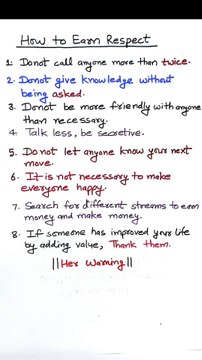 How to Earn Respect
1. Donot call anyone more than twice.
2. Donot give knowledge without
being asked.
3. Donot be more friendly with anyone
than necessary.
4 Talk less, be secretive.
5. Do not let anyone know your next
move.
6. It is not necessary to make
everyone happy.
7. Search for different streams to earn
money and make money.
8. If someone has improved your life
by adding value, Thank them.
||Her Warning||